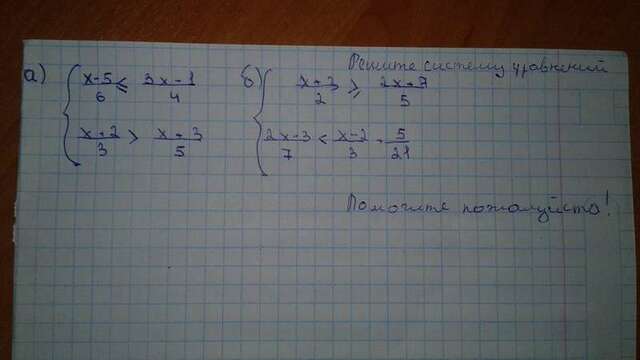 Решите систему уравнений
а) { x-5/6 ≤ 3x-1/4
x+2/3 > x+3/5
б) { x+3/2 ≥ 2x+7/5
2x-3/7 < x-2/3 + 5/21
Помогите пожалуйста!